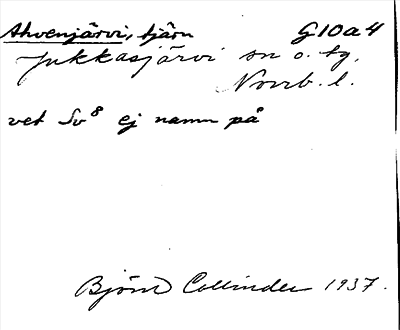 Ahvenjärvi, tjärn G10a4
Jukkasjärvi sn o. tg,
Norrb. l.
vet Sv8 ej namn på
Björn Collinder 1937.